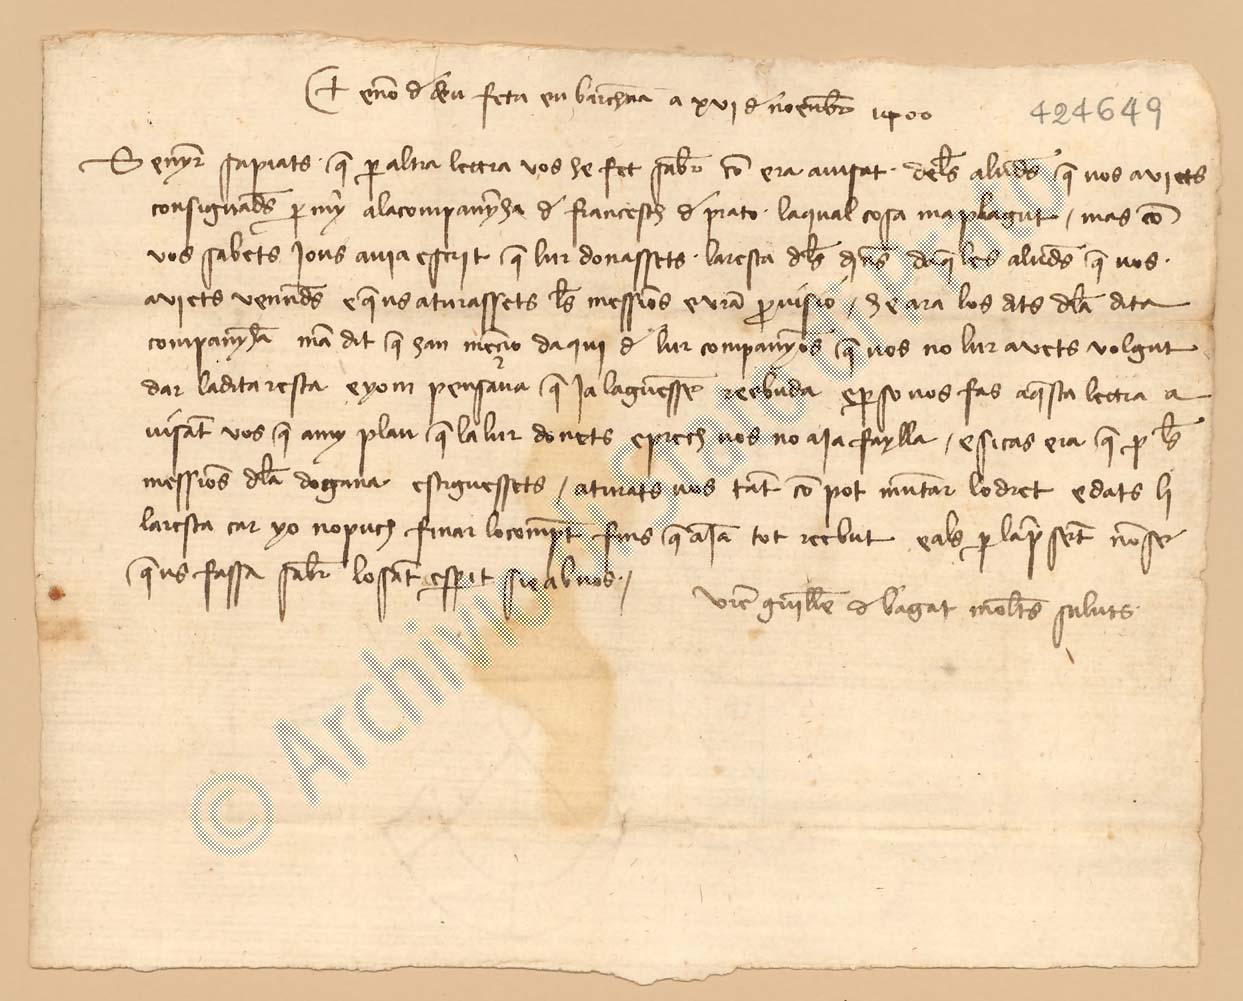 ✝ en nō d deu feta en barchna a xvi d noembr 1400
424649
Senyr sapiats q p altra letra vos he fet sabr cō era avisat dels aludes q vos aviets
consignads p my ala companyha d francesch d prato laqual cosa ma plagut / mas cō
vos sabets Jo us avia escrit q lur donassets la resta dls drs daqles aluds q vos
aviets venuds e q us aturassets ls messiōs e vra pvisio / he ara los dits dla dita
companyha man dit q han meciō daqui d lur companyōs q vos no lur avets volgut
dar la dita resta e yo m pensava q Ja laguessē reebuda e p so vos fas aqsta letra a
visāt vos q a my plau q la lur donets e prech vos no aJa faylla / e si cas era q p ls
messiōs dla dogana estiguessets / aturats vos tāt cō pot mūtar lo dret e dats li
la resta car yo no puch finar lo compt fins q aJā tot reebut e als p la psēt nō se
q us fassa sabr lo sāt esperit sie ab vos /
vrē guillē d bagat molts saluts
© Archivio di Stato di Prato